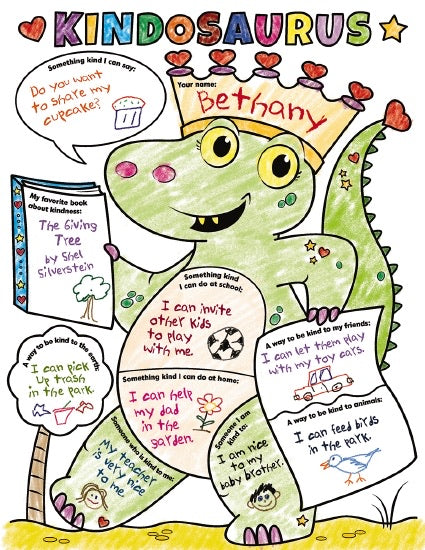 KINDOSAURUS
Something kind I can say:
Do you want
to share my
cupcake?
Your name:
Bethany
My favorite book
about kindness:
The Giving
Tree
by Shel
Silverstein
Something kind
I can do at school:
I can invite
other kids
to play
with me.
A way to be kind to the earth:
I can pick
up trash
in the park.
Something kind I can do at home:
I can help
my dad
in the
garden.
A way to be kind to my friends:
I can let them play
with my toy cars.
A way to be kind to animals:
I can feed birds
in the park.
Someone who is kind to me:
My teacher
is very nice
to me.
Someone I am
kind to:
I am nice
to my
baby brother.